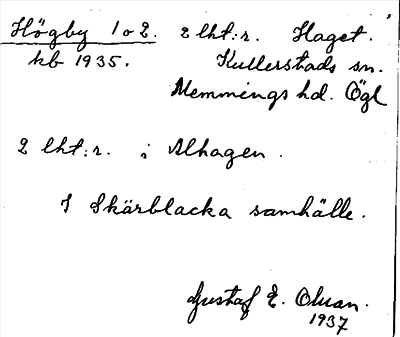 Högby 1 o 2. 2 lht:r. Haget.
kb 1935. Kullerstads sn.
Memmings hd. Ögl
2 lht:r. i Alhagen.
I Skärblacka samhälle.
Gustaf E. Olsson.
1937